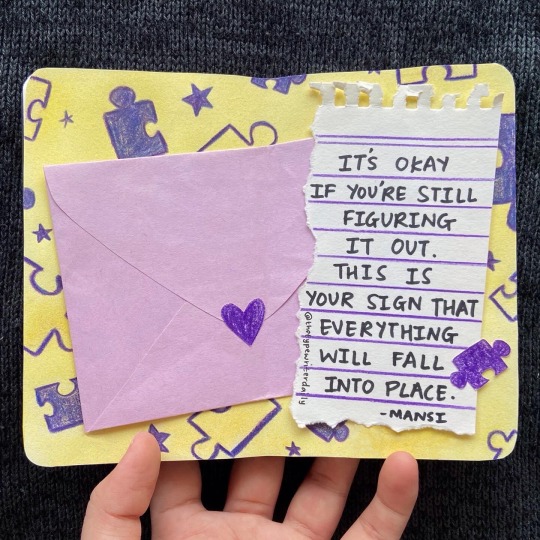 IT'S OKAY
IF YOU'RE STILL
FIGURING
IT OUT.
THIS IS
YOUR SIGN THAT
EVERYTHING
WILL FALL
INTO PLACE.
-MANSI
@thetypewriterdaily